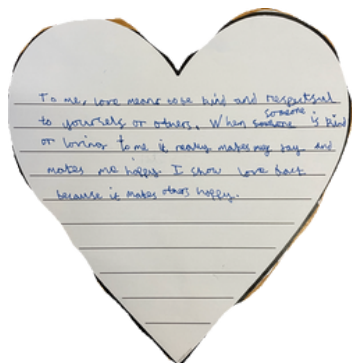 To me, love means to be kind and respectful
to yourself or others. When someone is kind
or loving to me it really makes my day and
makes me happy. I show love back
because it makes others happy.